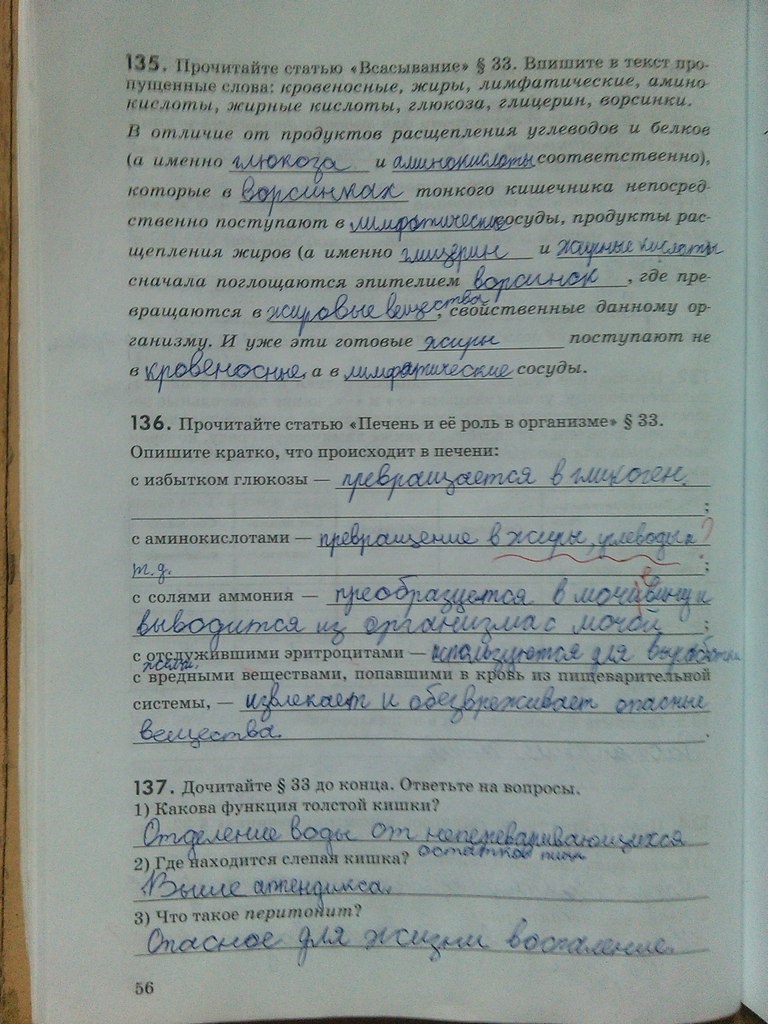 135. Прочитайте статью «Всасывание» § 33. Впишите в текст про-
пущенные слова: кровеносные, жиры, лимфатические, амино-
кислоты, жирные кислоты, глюкоза, глицерин, ворсинки.
В отличие от продуктов расщепления углеводов и белков
(а именно глюкоза и аминокислоты соответственно),
которые в ворсинках тонкого кишечника непосред-
ственно поступают в лимфатические сосуды, продукты рас-
щепления жиров (а именно глицерин и жирные кислоты
сначала поглощаются эпителием ворсинок, где пре-
вращаются в жировые вещества, свойственные данному ор-
ганизму. И уже эти готовые жиры поступают не
в кровеносные, а в лимфатические сосуды.
136. Прочитайте статью «Печень и её роль в организме» § 33.
Опишите кратко, что происходит в печени:
с избытком глюкозы — превращается в гликоген.
;
с аминокислотами — превращение в жиры, углеводы и ?
т.д. ;
с солями аммония — преобразуется в мочевину и
выводится из организма с мочой ;
с отслужившими эритроцитами — используются для выработки
желчи.
с вредными веществами, попавшими в кровь из пищеварительной
системы, — извлекает и обезвреживает опасные
вещества. .
137. Дочитайте § 33 до конца. Ответьте на вопросы.
1) Какова функция толстой кишки?
Отделение воды от непереваривающихся
остатков пищи
2) Где находится слепая кишка?
Выше аппендикса.
3) Что такое перитонит?
Опасное для жизни воспаление.
56